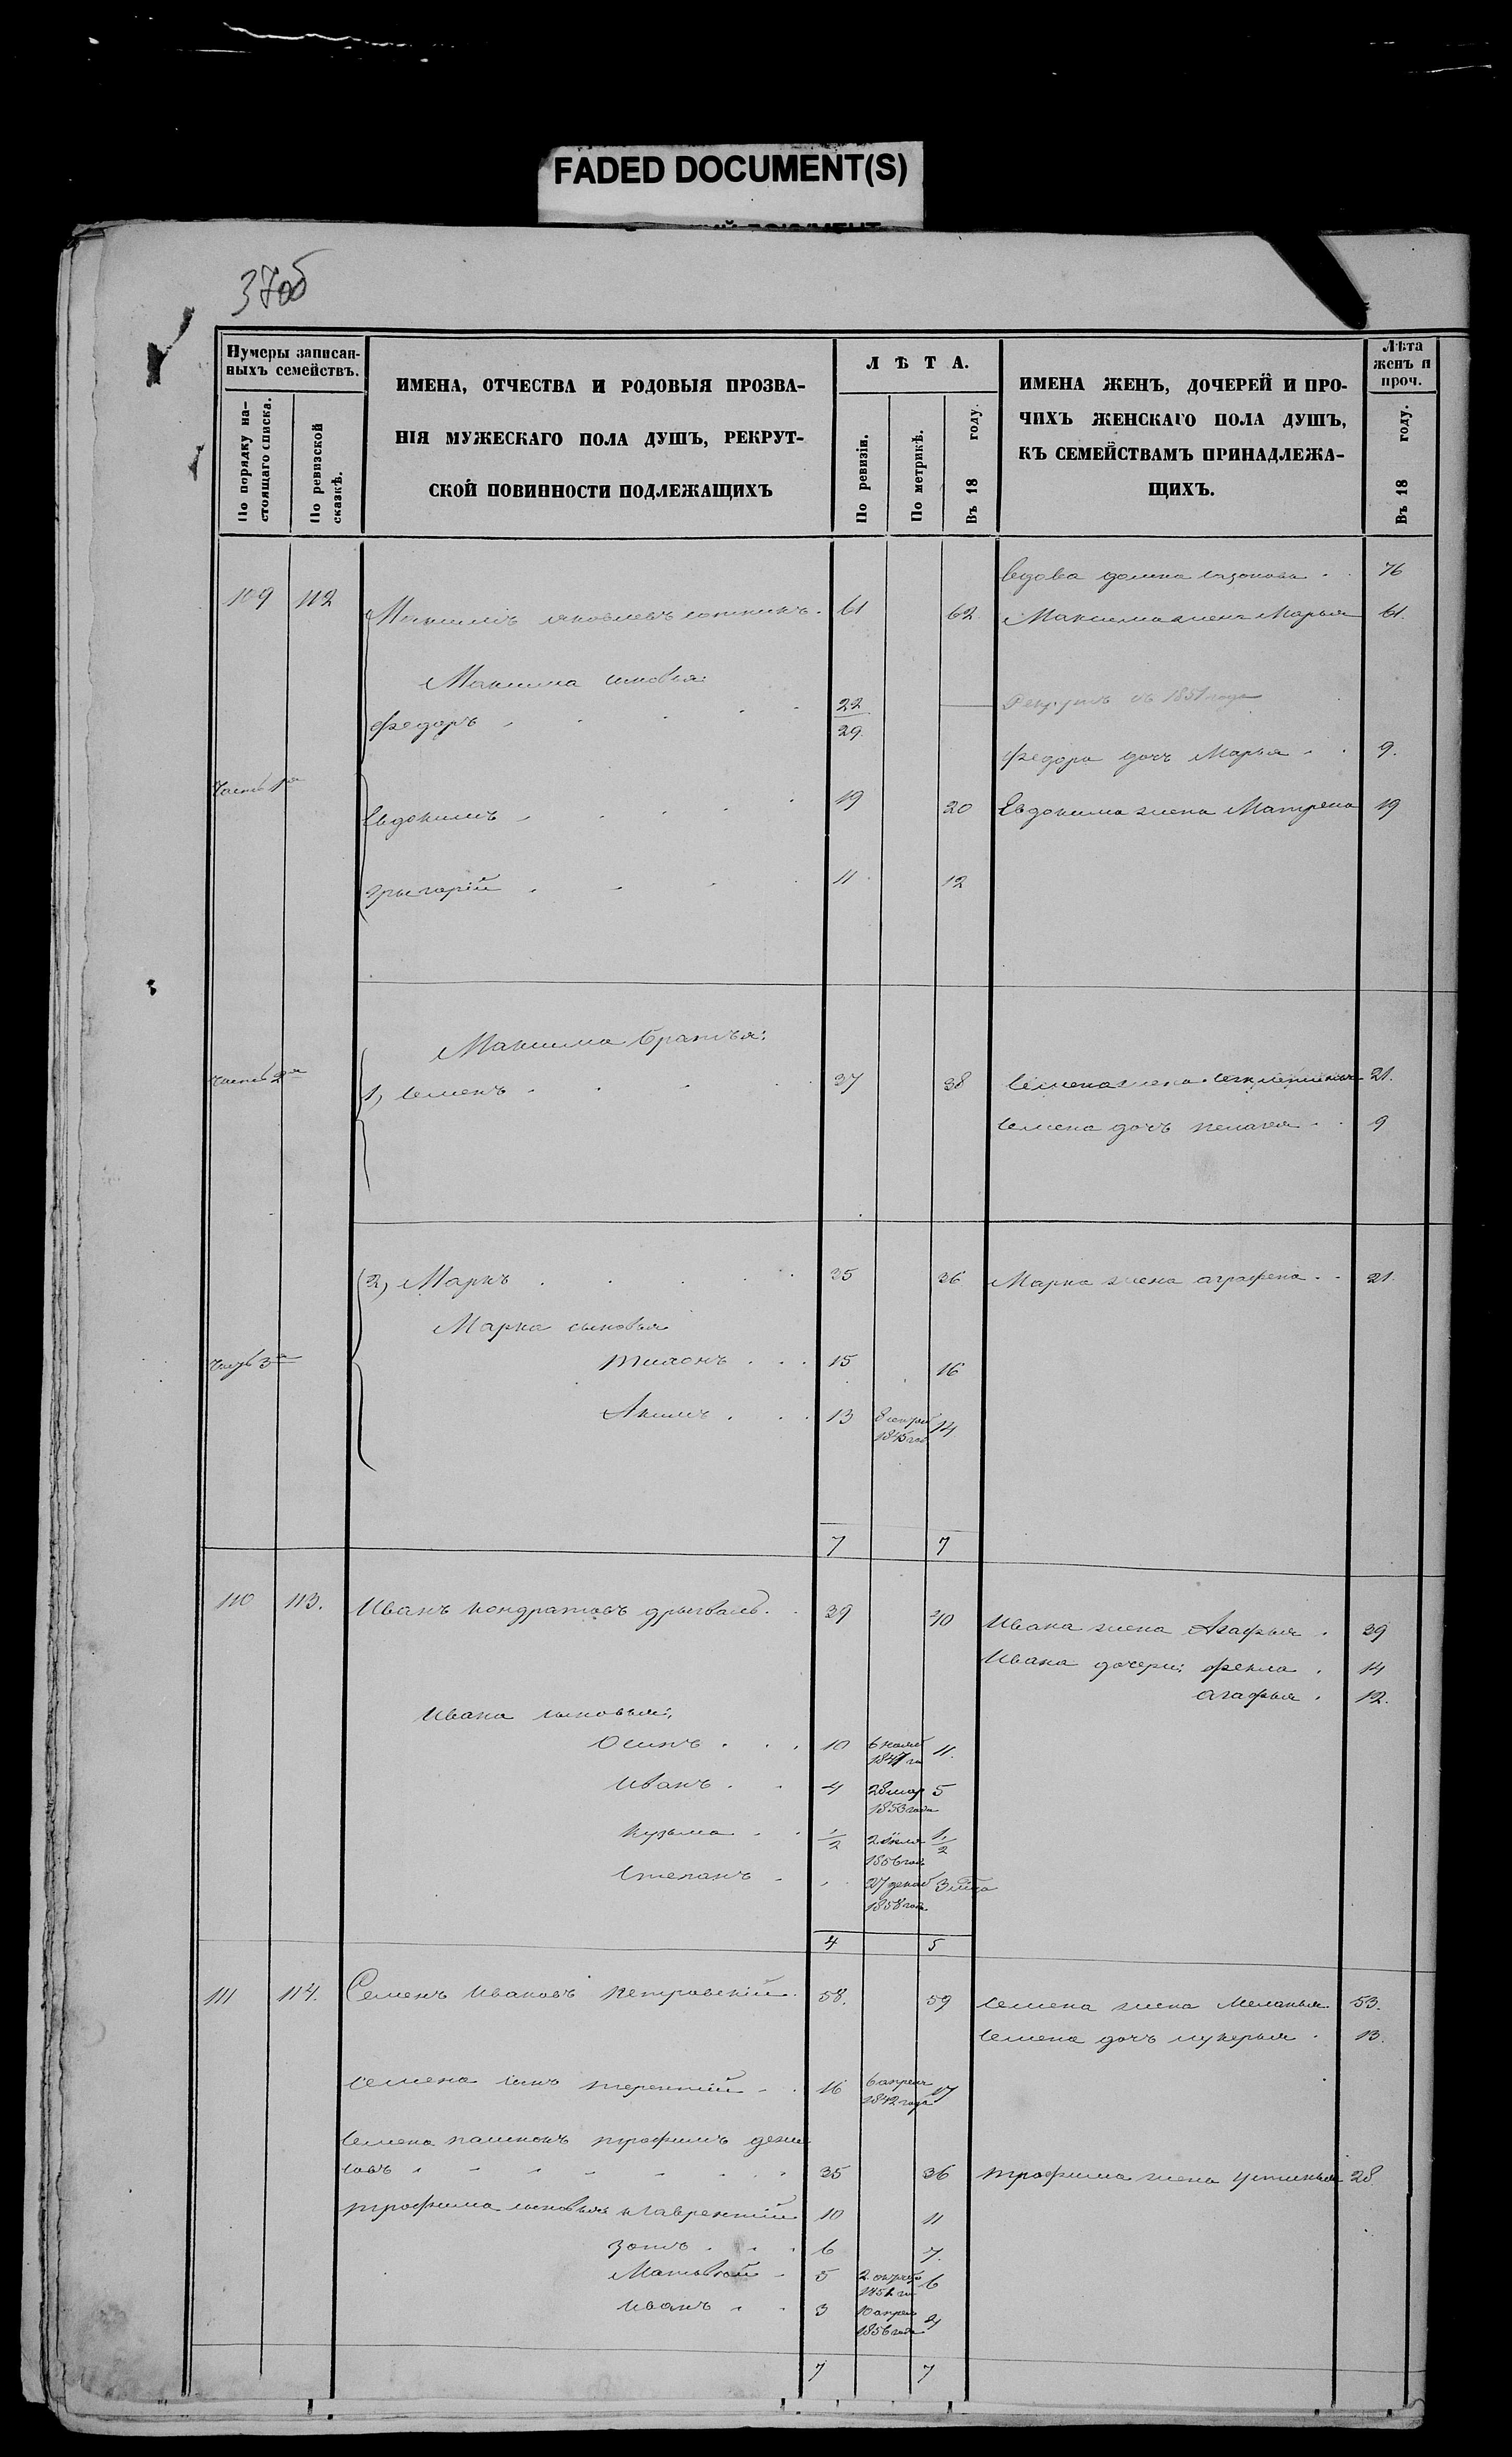 FADED DOCUMENT(S)
37об
Нумеры записан-
ныхъ семействъ.
По порядку на-
стоящаго списка.
По ревизской
сказкѣ.
ИМЕНА, ОТЧЕСТВА И РОДОВЫЯ ПРОЗВА-
НІЯ МУЖЕСКАГО ПОЛА ДУШЪ, РЕКРУТ-
СКОЙ ПОВИННОСТИ ПОДЛЕЖАЩИХЪ
ЛѢТА.
По ревизіи.
По метрикѣ.
Въ 18 году.
ИМЕНА ЖЕНЪ, ДОЧЕРЕЙ И ПРО-
ЧИХЪ ЖЕНСКАГО ПОЛА ДУШЪ,
КЪ СЕМЕЙСТВАМЪ ПРИНАДЛЕЖА-
ЩИХЪ.
Лѣта
женъ и
проч.
Въ 18 году.
вдова 76
109 112 Максимъ яковлевъ 61 62 Максима жена Марья 61.
Максима сыновья:
Федоръ 22 съ 1851 года
29
Федора дочь Марья 9.
Часть 1я
Евдокимъ 19 20 Евдокима жена Матрена 19
григорій 11 12
Максима братья:
часть 2я 1, семенъ 37 38 Семена жена 21.
семена дочь пелагея 9
2, Маркъ 35 36 Марка жена аграфена 21.
Марка сыновья
часть 3я тихонъ 15 16
Акимъ 13 8 14
1845 год
7 7
110 113. Иванъ кондратовъ 39 40 Ивана жена Агафья 39
Ивана дочери: фекла 14
агафья 12.
Ивана сыновья:
Осипъ 10 6 нояб 11.
1847 го
Иванъ 4 28 мар 5
1853 года
Кузьма 1/2 1/2
1856 год
степанъ 27 декаб 3
1858 год
4 5
111 114. Семенъ Ивановъ Петровскій 58. 59 семена жена Меланья 53.
семена дочь лукерья 13.
семена сынъ терентій 16 6 апреля 17
1842 года
Семена трофимъ дени
совъ 35 36 трофима жена устинья 28
трофима сыновья Лаврентій 10 11
зотъ 6 7.
Матвѣй 5 2 октября 6
Иванъ 3 10 апреля 4
1856 года
7 7